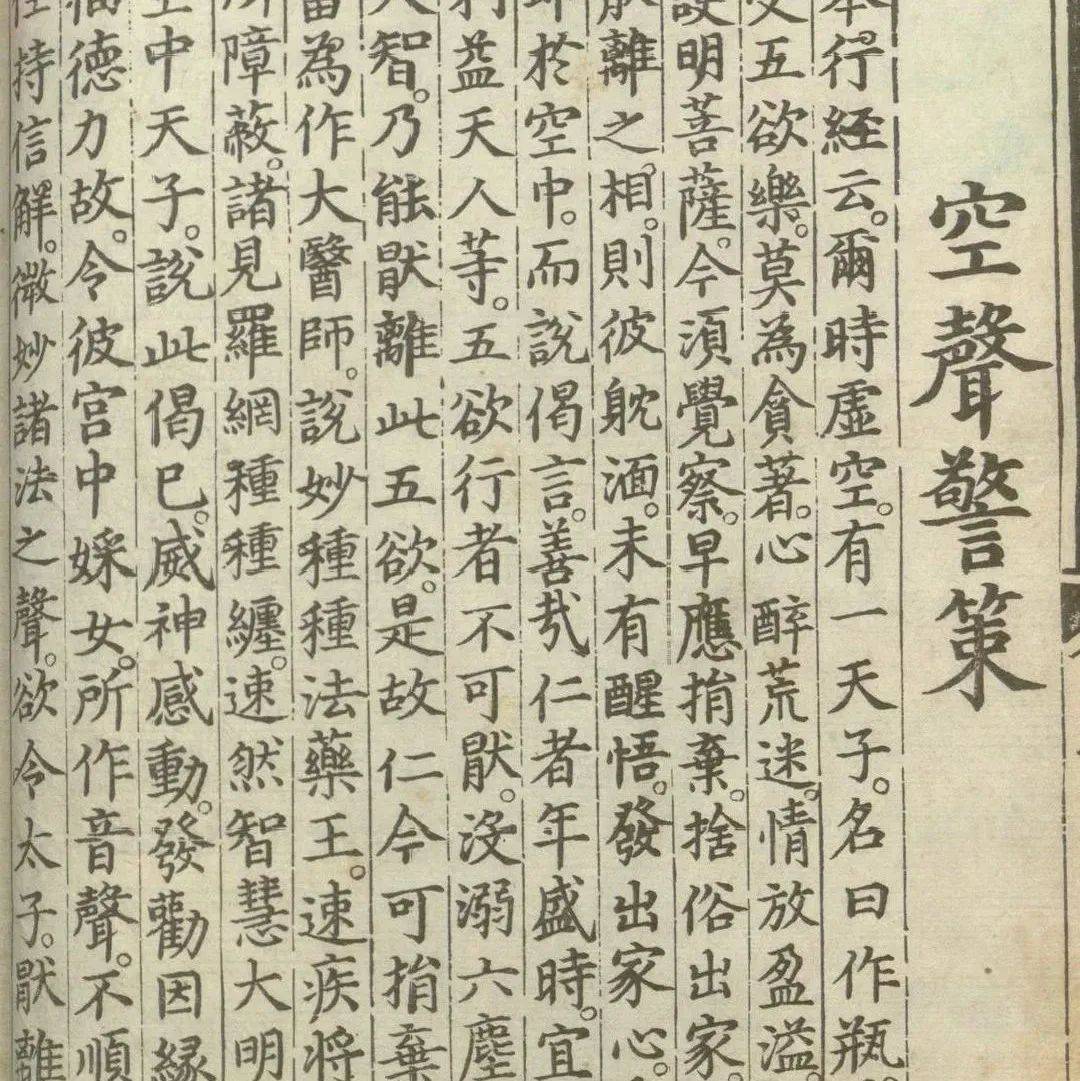 空聲警策
本行經云。爾時虛空。有一天子。名曰作瓶
受五欲樂。莫為貪著。心醉荒迷。情放盈溢。
護明菩薩。今須覺察。早應捐棄。捨俗出家。
猒離之相。則彼躭湎。未有醒悟。發出家心。
即於空中。而說偈言。善哉仁者年盛時。宜
利益天人等。五欲行者不可猒。沒溺六塵
大智。乃能猒離此五欲。是故仁今可捐棄
當為作大醫師。說妙種種法藥王。速疾將
所障蔽。諸見羅網種種纏。速然智慧大明
空中天子。說此偈已。威神感動。發勸因緣
福德力故。令彼宮中婇女。所作音聲。不順
住持信解。微妙諸法之聲。欲令太子。猒離